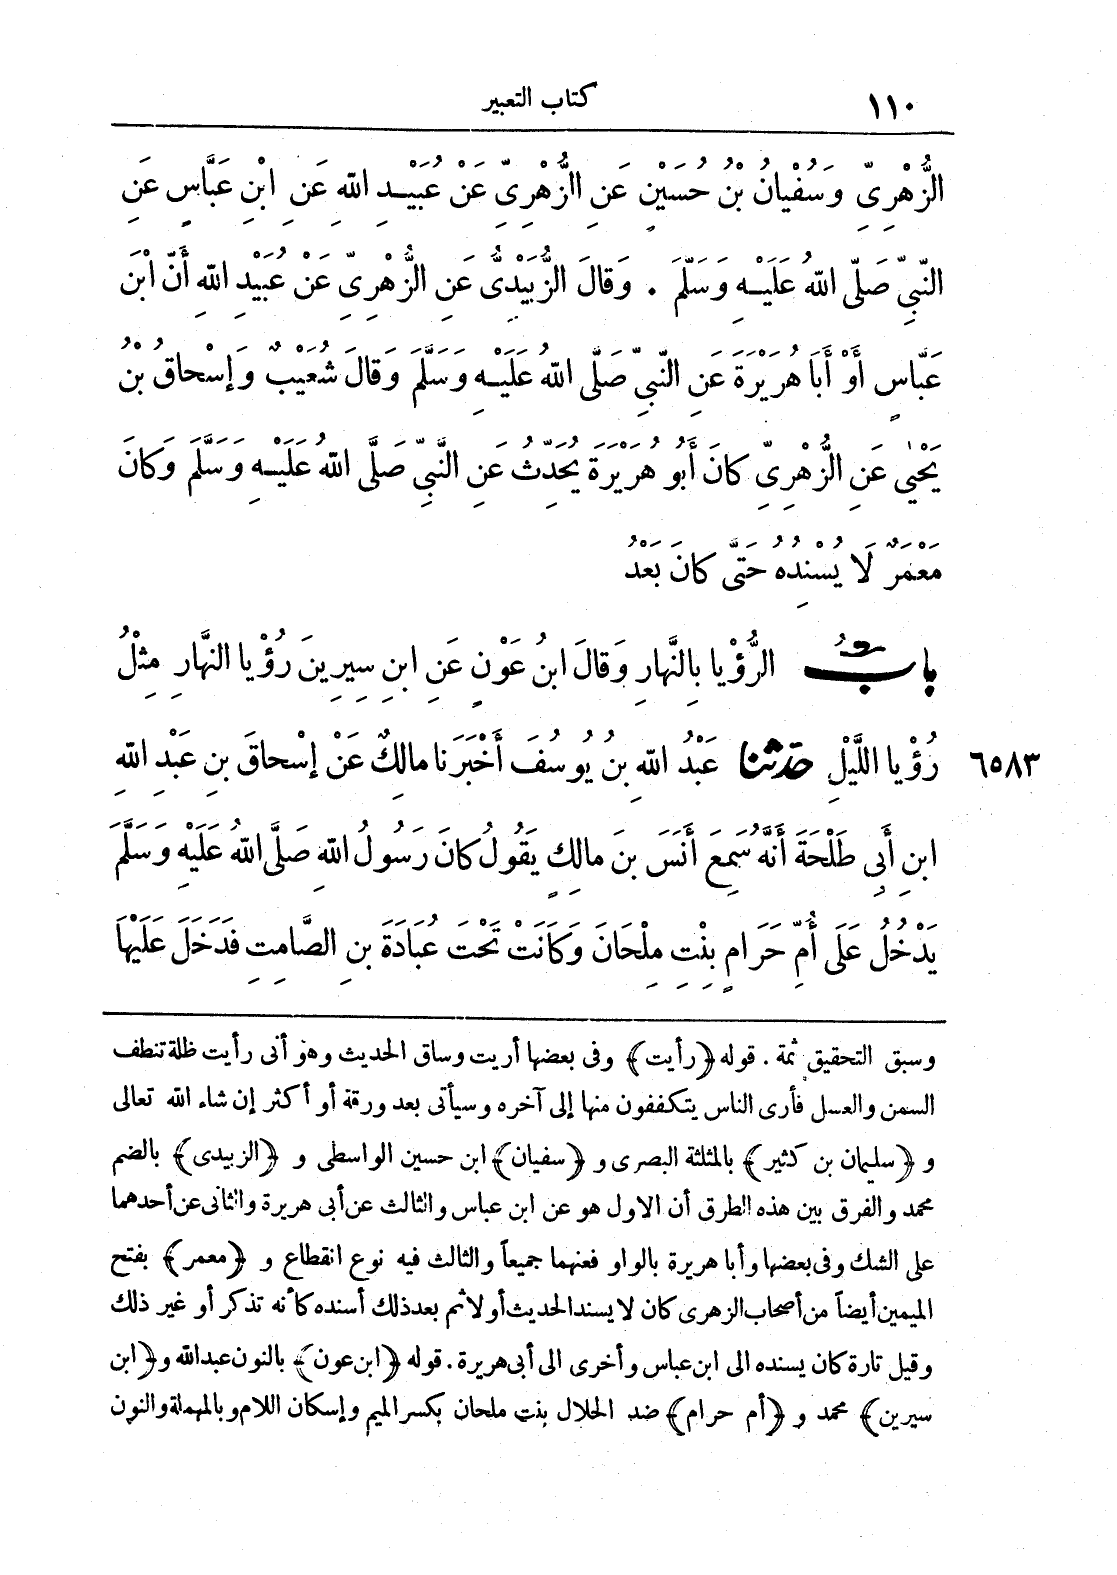 ١١٠ كتاب التعبير
الزُّهْرِيِّ وَسُفْيَانُ بْنُ حُسَيْنٍ عَنِ الزُّهْرِىِّ عَنْ عُبَيْدِ اللهِ عَنِ ابْنِ عَبَّاسٍ عَنِ
النَّبِيِّ صَلَّى اللهُ عَلَيْهِ وَسَلَّمَ . وَقَالَ الزُّبَيْدِىُّ عَنِ الزُّهْرِىِّ عَنْ عُبَيْدِ اللهِ أَنَّ ابْنَ
عَبَّاسٍ أَوْ أَبَا هُرَيْرَةَ عَنِ النَّبِيِّ صَلَّى اللهُ عَلَيْهِ وَسَلَّمَ وَقَالَ شُعَيْبٌ وَإِسْحَاقُ بْنُ
يَحْيٰى عَنِ الزُّهْرِىِّ كَانَ أَبُو هُرَيْرَةَ يُحَدِّثُ عَنِ النَّبِيِّ صَلَّى اللهُ عَلَيْهِ وَسَلَّمَ وَكَانَ
مَعْمَرٌ لَا يُسْنِدُهُ حَتَّى كَانَ بَعْدُ
بابُ الرُّؤْيا بِالنَّهارِ وَقالَ ابنُ عَوْنٍ عَنِ ابنِ سِيرِينَ رُؤْيا النَّهارِ مِثْلُ
رُؤْيا اللَّيْلِ حدثنا عَبْدُ اللهِ بنُ يُوسُفَ أَخْبَرَنا مالِكٌ عَنْ إِسْحاقَ بنِ عَبْدِ اللهِ ٦٥٨٣
ابنِ أَبِى طَلْحَةَ أَنَّهُ سَمِعَ أَنَسَ بنَ مالِكٍ يَقُولُ كانَ رَسُولُ اللهِ صَلَّى اللهُ عَلَيْهِ وَسَلَّمَ
يَدْخُلُ عَلَى أُمِّ حَرَامٍ بِنْتِ مِلْحَانَ وَكَانَتْ تَحْتَ عُبَادَةَ بنِ الصَّامِتِ فَدَخَلَ عَلَيْهَا
وسبق التحقيق ثمة . قوله ﴿رأيت﴾ وفى بعضها أريت وساق الحديث وهو أنى رأيت ظلة تنطف
السمن والعسل فأرى الناس يتكففون منها إلى آخره وسيأتى بعد ورقة أو أكثر إن شاء الله تعالى
و ﴿سليمان بن كثير﴾ بالمثلثة البصرى و ﴿سفيان﴾ ابن حسين الواسطى و ﴿الزبيدى﴾ بالضم
محمد والفرق بين هذه الطرق أن الاول هو عن ابن عباس والثالث عن أبى هريرة والثانى عن أحدهما
على الشك وفى بعضها وأبا هريرة بالواو فعنهما جميعاً والثالث فيه نوع انقطاع و ﴿معمر﴾ بفتح
الميمين أيضاً من أصحاب الزهرى كان لا يسند الحديث أولا ثم بعد ذلك أسنده كأنه تذكر أو غير ذلك
وقيل تارة كان يسنده الى ابن عباس وأخرى الى أبى هريرة . قوله ﴿ابن عون﴾ بالنون عبد الله و ﴿ابن
سيرين﴾ محمد و ﴿أم حرام﴾ ضد الحلال بنت ملحان بكسر الميم وإسكان اللام وبالمهملة والنون